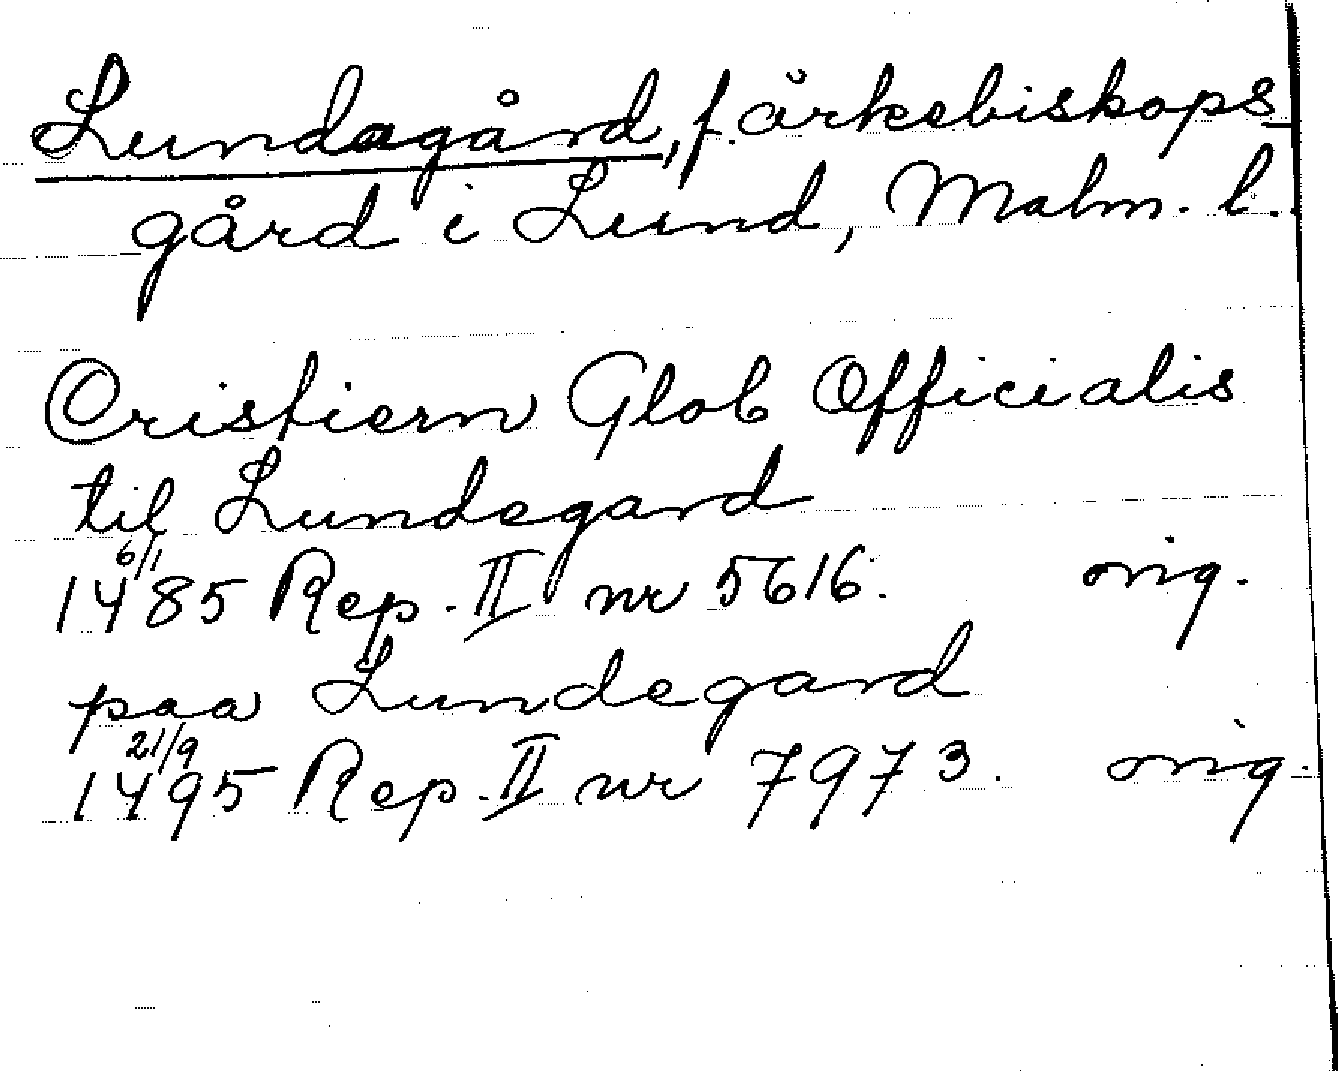 Lundagård, f. ärkebiskops-
gård i Lund, Malm. l.
Cristiern Glob Officialis
til Lundegard
6/1
1485 Rep. II nr 5616. orig.
paa Lundegard
21/9
1495 Rep. II nr 7973. orig.